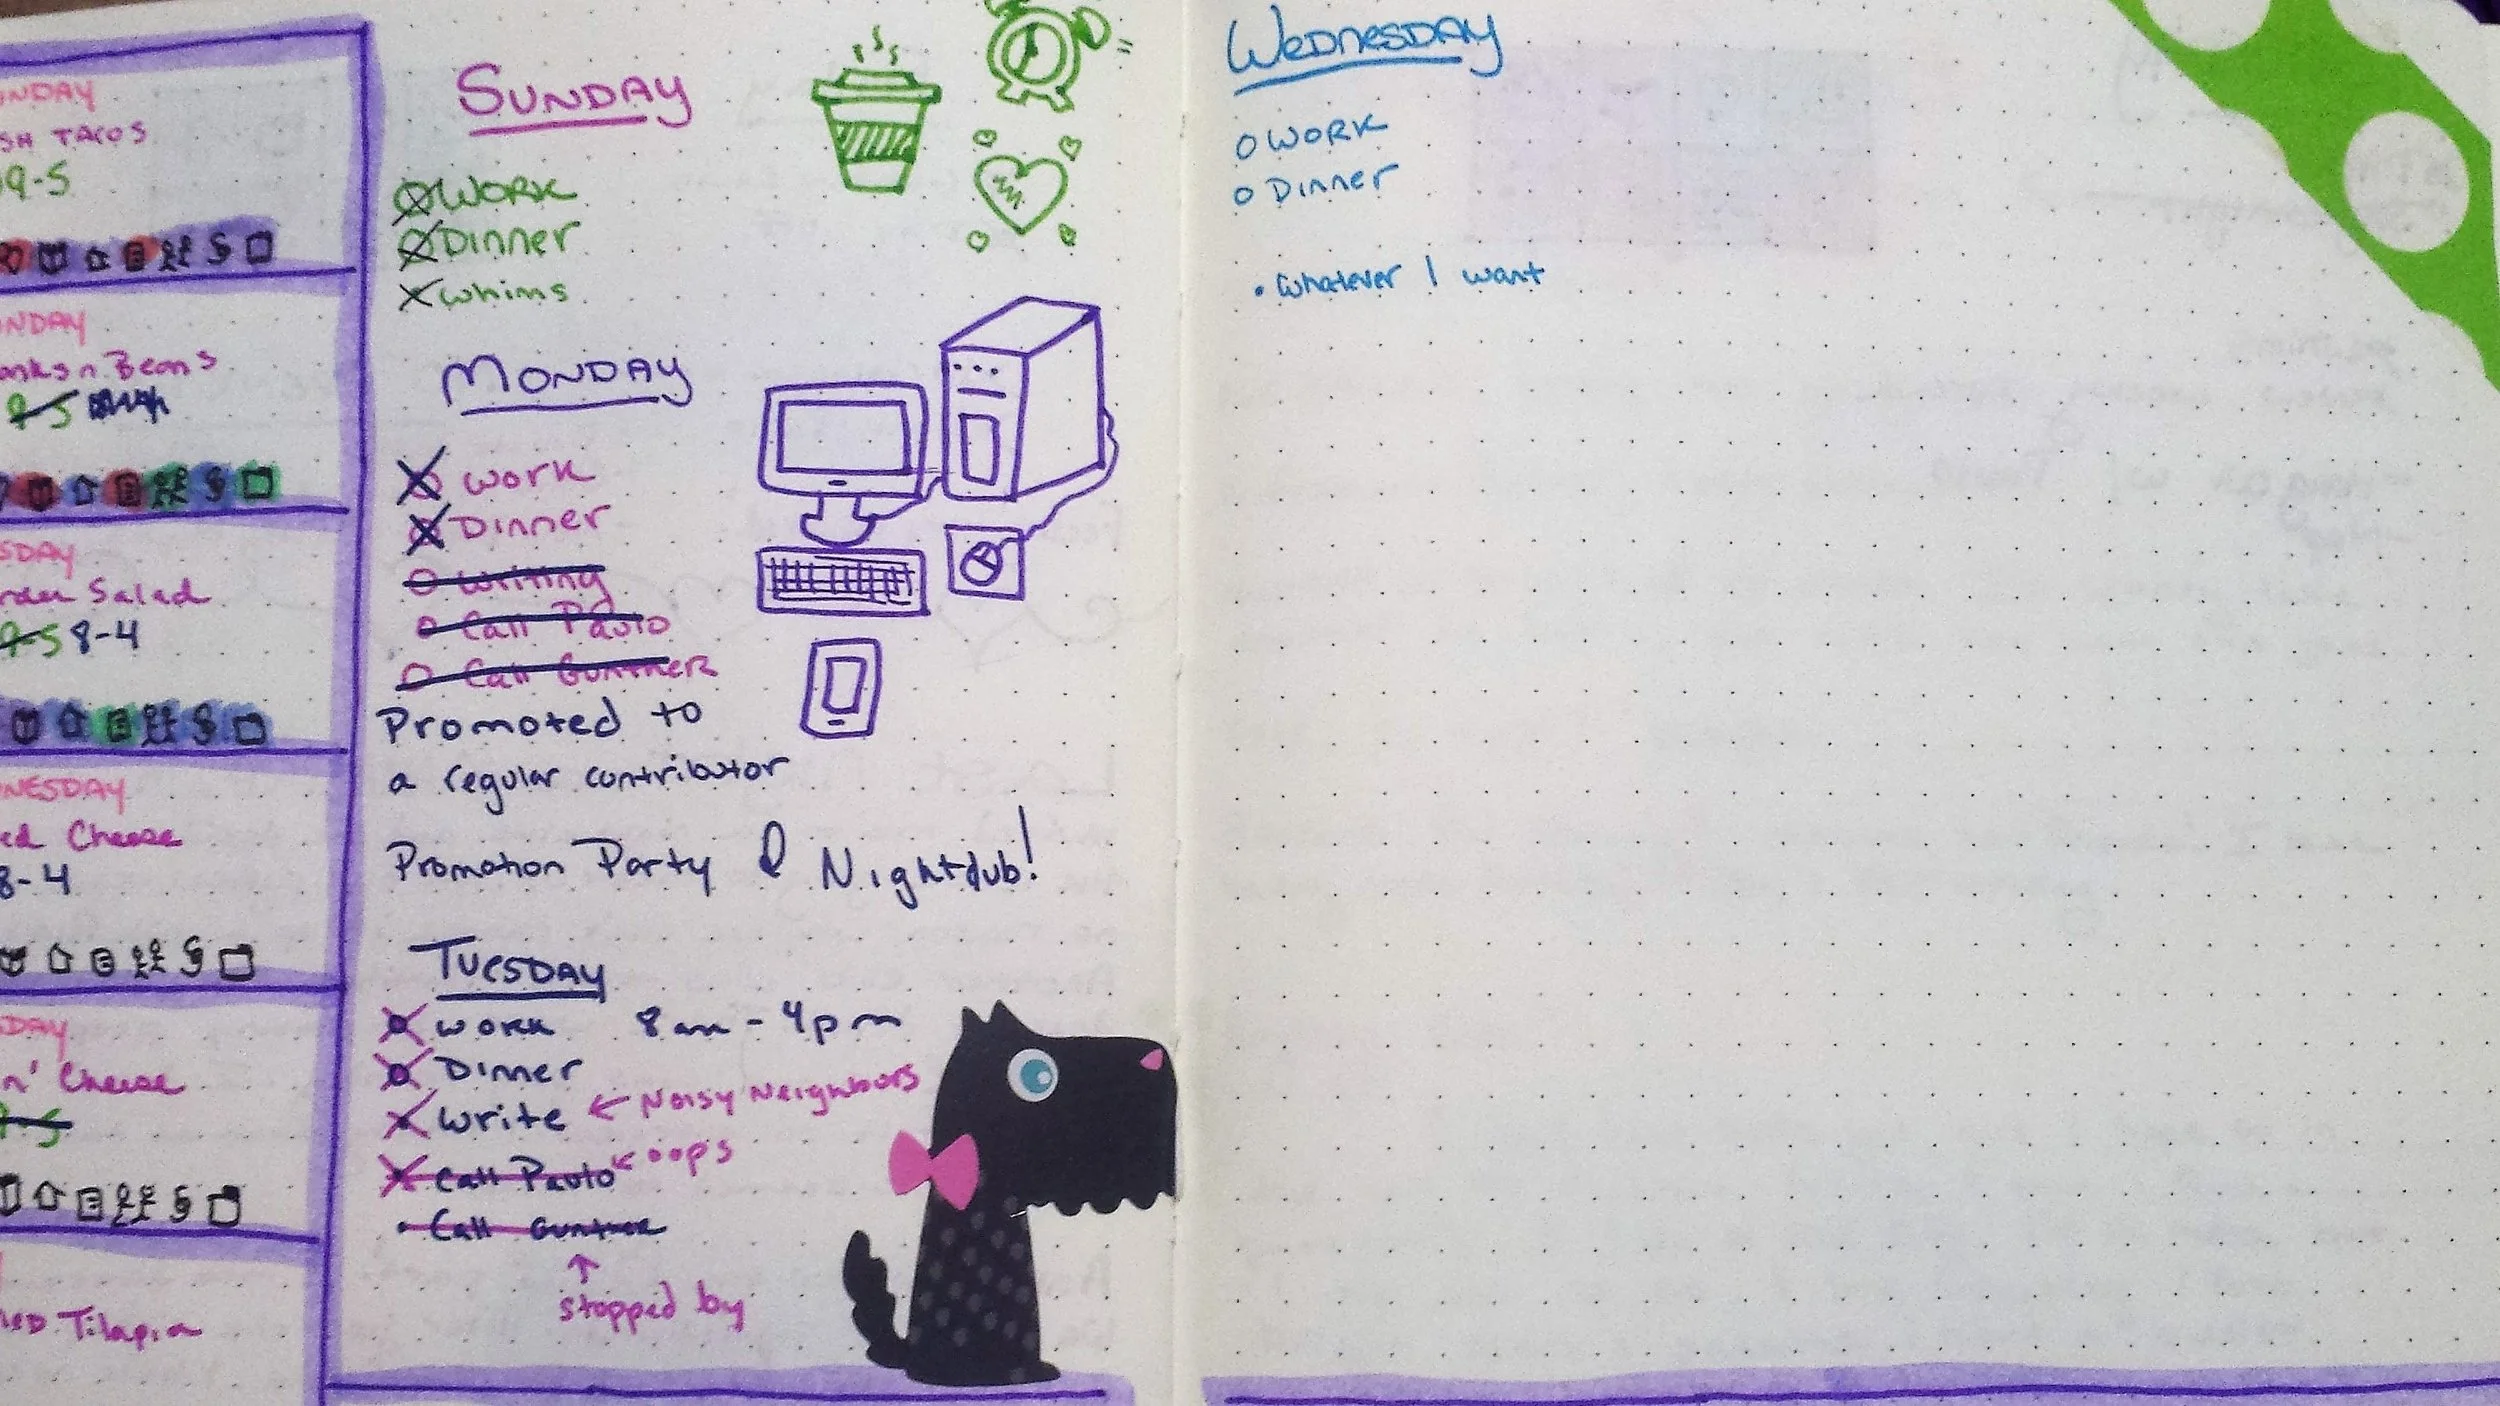 UNDAY
SH TACOS
9-5
NDAY
anks n Beans
9-5
SDAY
rden Salad
9-5 8-4
NESDAY
ed Cheese
8-4
DAY
n' Cheese
9-5
Tilapia
SUNDAY
WORK
Dinner
whims
MONDAY
work
Dinner
Writing
Call Paulo
Call Gunther
Promoted to
a regular contributor
Promotion Party @ Nightclub!
TUESDAY
work 8am - 4pm
Dinner
Write ← Noisy Neighbors
Call Paulo ← oops
Call Gunther
↑
stopped by
WEDNESDAY
WORK
Dinner
• Whatever I want